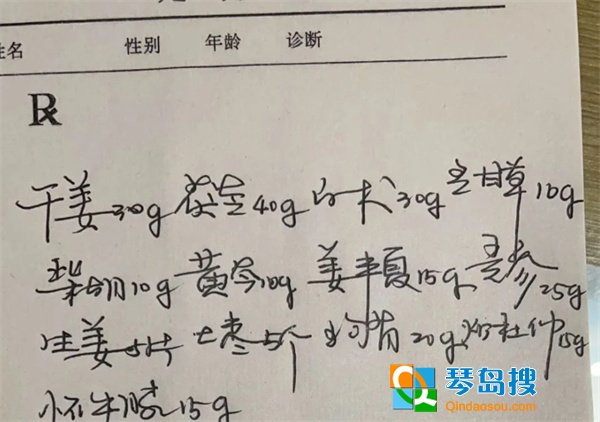 姓名 性别 年龄 诊断
R
干姜30g 茯苓40g 白术30g 炙甘草10g
柴胡10g 黄芩10g 姜半夏15g 党参25g
生姜5片 大枣5个 狗脊20g 炒杜仲15g
怀牛膝15g
琴岛搜
Qindaosou.com